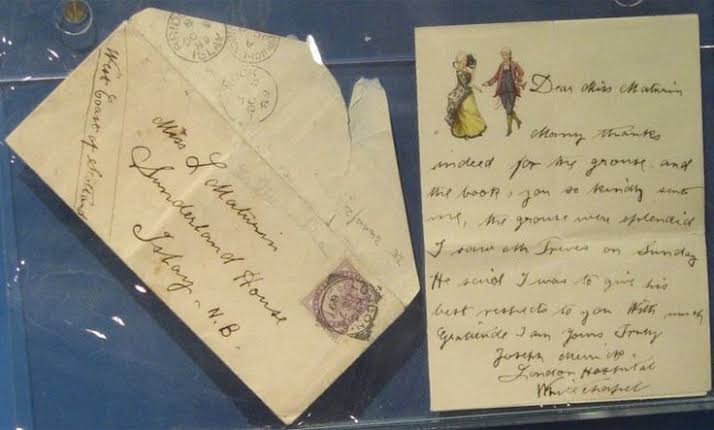 West Coast of Scotland
Miss L Maturin
Sunderland House
Islay. N.B.
LONDON
Dear Miss Maturin
Many thanks
indeed for the grouse and
the book, you so kindly sent
me, the grouse were splendid
I saw Mr Treves on Sunday
He said I was to give his
best respects to you With much
Gratitude I am Yours Truly
Joseph Merrick.
London Hospital
Whitechapel